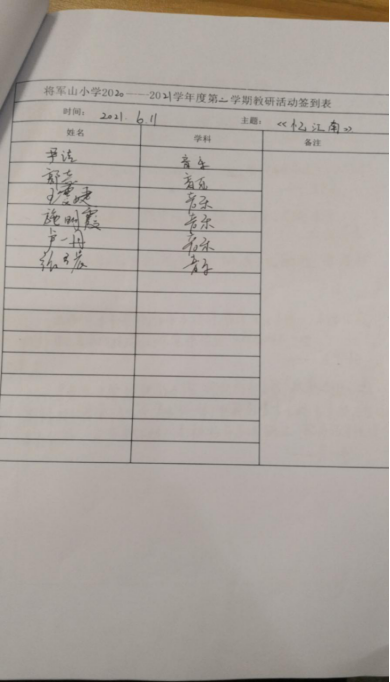 将军山小学2020——2021学年度第二学期教研活动签到表
时间： 2021. 6. 11 主题： 《忆江南》
姓名 学科 备注
音乐
音乐
音乐
施明霞 音乐
卢一丹 音乐
音乐